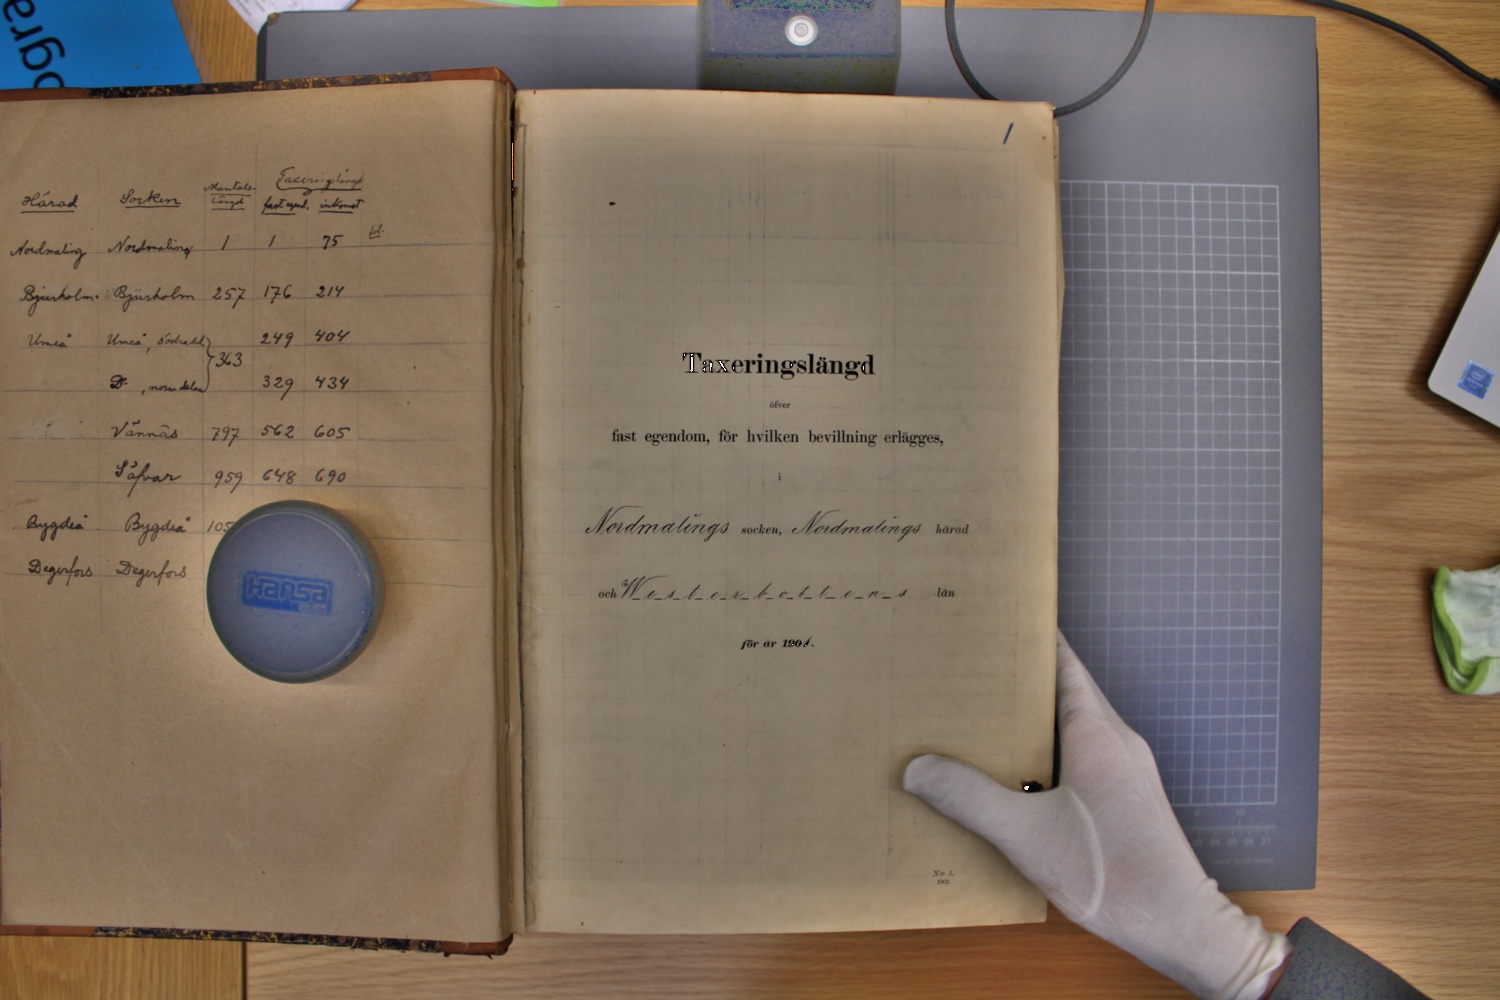 Härad Socken Mantals-längd Taxeringslängd
fast egend. inkomst
Nordmaling Nordmaling 1 1 75
Bjurholm Bjurholm 257 176 214
Umeå Umeå, södra del. 249 404
363
D:o, norra delen 329 434
Vännäs 797 562 605
Säfvar 959 648 690
Bygdeå Bygdeå 105
Degerfors Degerfors
Hansa
1
Taxeringslängd
öfver
fast egendom, för hvilken bevillning erlägges,
i
Nordmalings socken, Nordmalings härad
och Westerbottens län
för år 1901.
N:r 1.
1901.